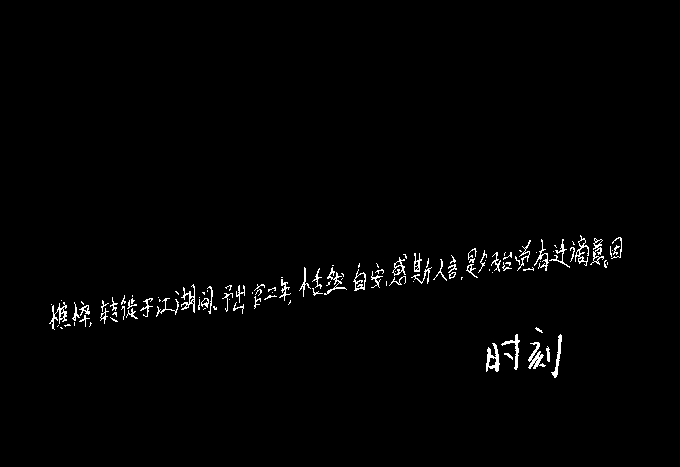 憔悴,转徙于江湖间。予出官二年,恬然自安,感斯人言,是夕始觉有迁谪意。因
时刻